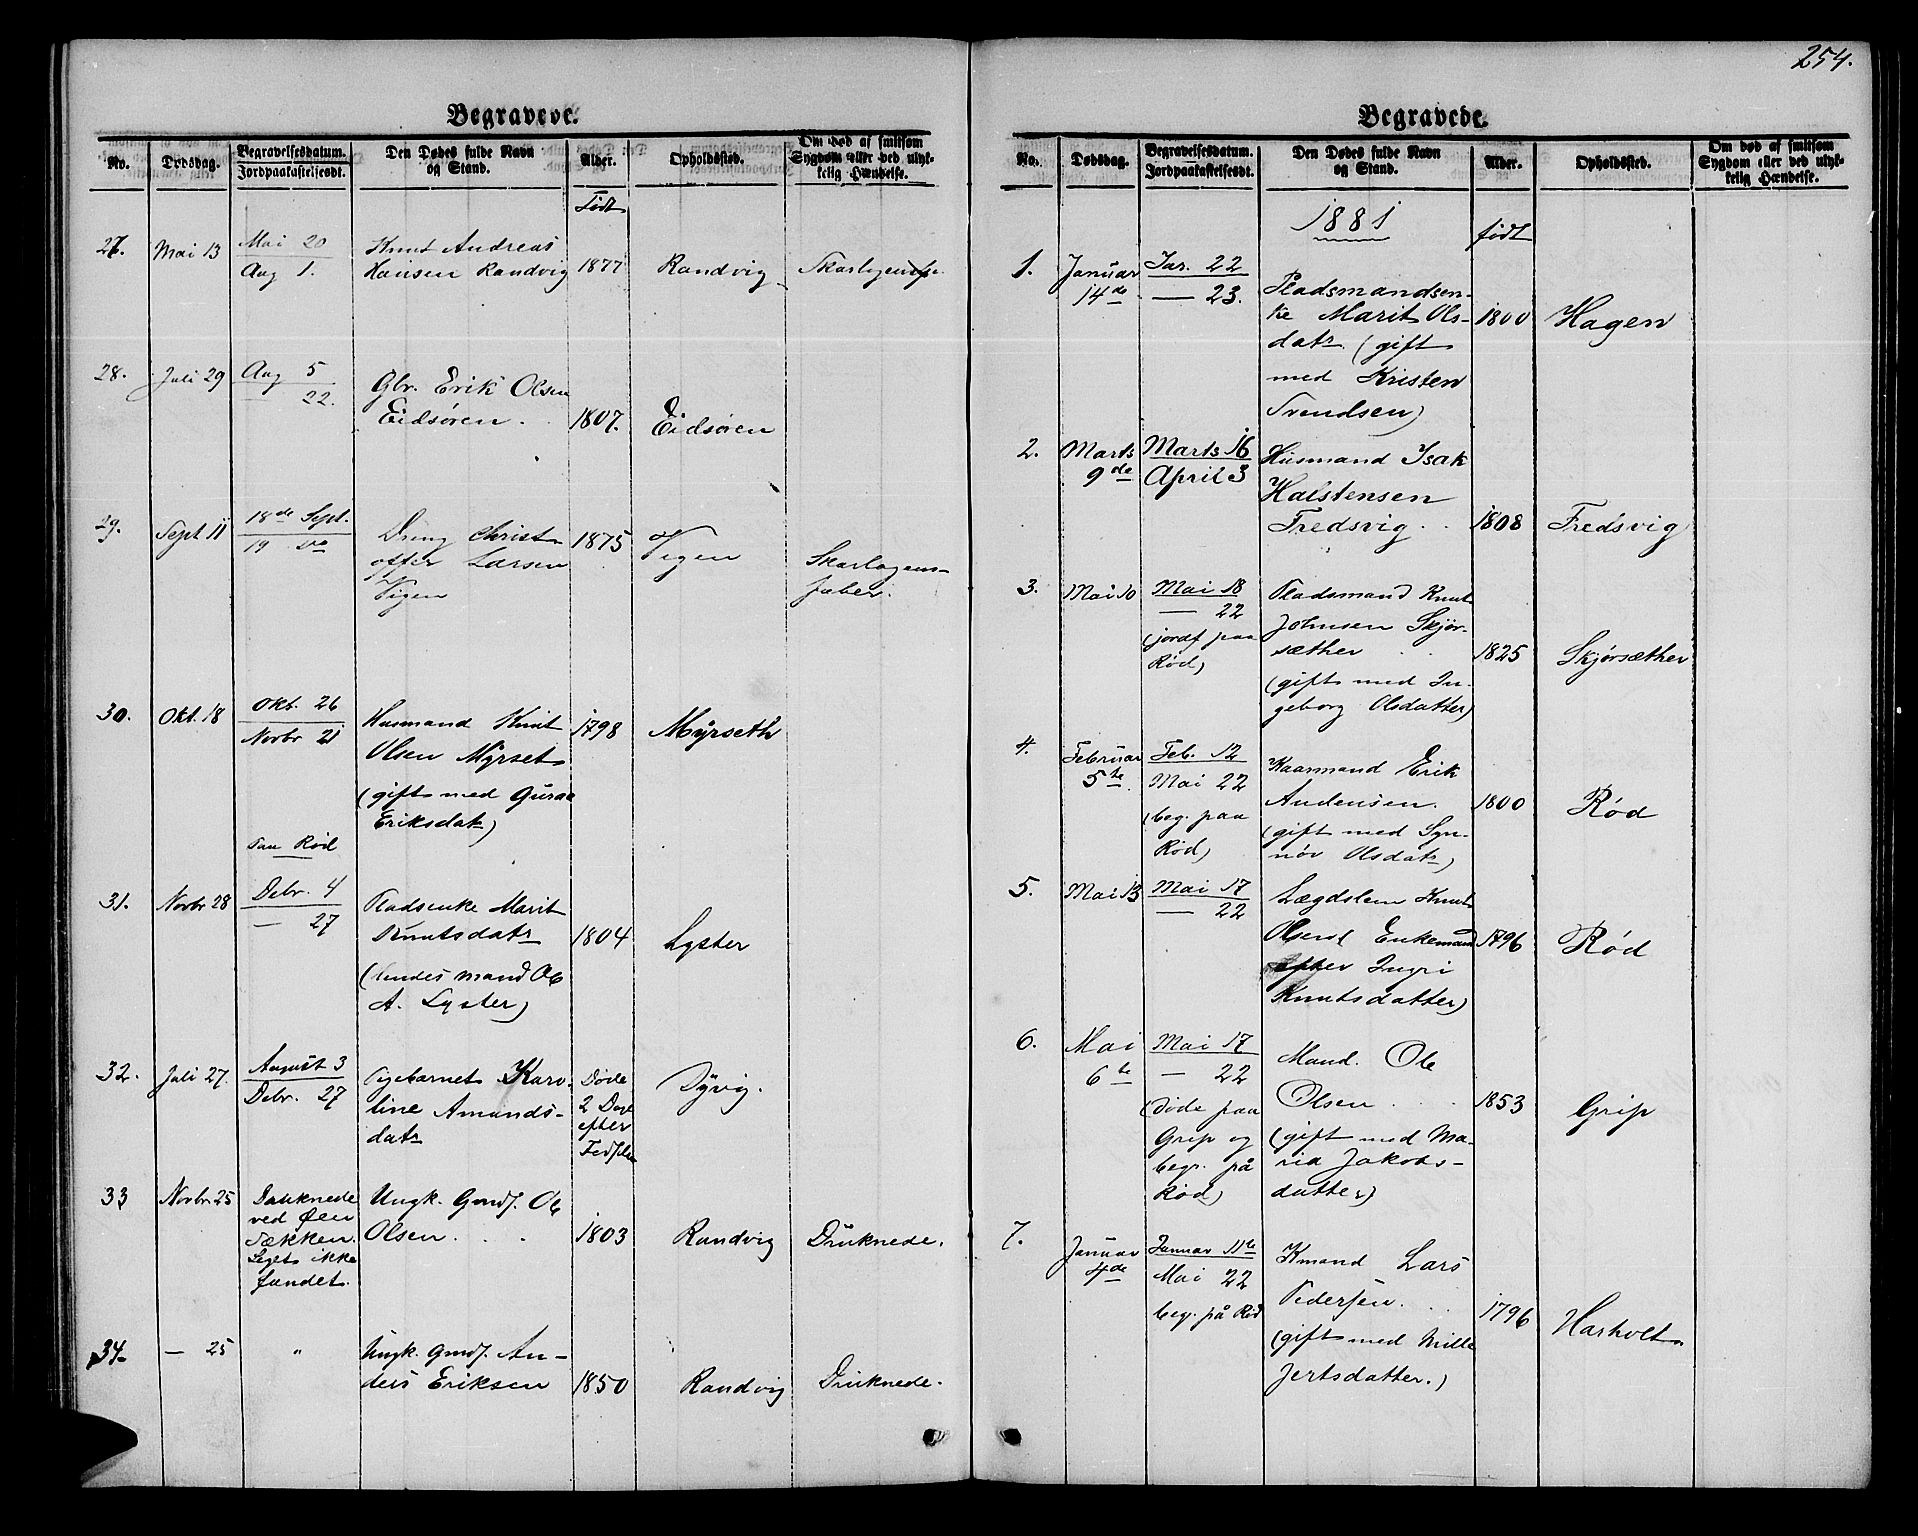 254.
Begravede.
No.
Dødsdag.
Begravelsesdatum.
Jordpaakastelsesdt.
Den Dødes fulde Navn
og Stand.
Alder.
Opholdssted.
Om død af smitsom
Sygdom eller ved ulyk-
kelig Hændelse.
Født
27. Mai 13
Mai 20
Aug 1.
Knut Andreas
Hansen Randvig
1877
Randvig
28. Juli 29
Aug 5
22.
Gbr. Erik Olsen
Eidsøren.
1807.
Eidsøren
29. Sept 11
18de Sept.
19 do
Dreng Christ
offer Larsen
Vigen
1875
Vigen
Skarlagens-
feber.
30. Okt. 18
Okt. 26
Novbr 21
Husmand Knut
Olsen Myrset
(gift med Guraa
Eriksdatr)
Paa Rød
1798
Myrseth
31. Novbr 28
Debr. 4
— 27
Pladsenke Marit
Knutsdatr
(hendes mand Ole
A. Lyster)
1804
Lyster
32. Juli 27.
August 3
Debr. 27
Pigebarnet Karo-
line Amunds-
datr
Døde
2 Dage
efter
Fødslen
Dyrvig.
33 Novbr 25
Druknede
ved Øen
Sækken.
Liget ikke
fundet.
Ungk. Gmdf. Ole
Olsen.
1803
Randvig
Druknede.
34. — 25
"
Ungk. Gmdf. An-
ders Eriksen
1850
Randvig
Druknede.
Begravede.
No.
Dødsdag.
Begravelsesdatum.
Jordpaakastelsesdt.
Den Dødes fulde Navn
og Stand.
Alder.
Opholdssted.
Om død af smitsom
Sygdom eller ved ulyk-
kelig Hændelse.
1881
født
1. Januar
14de
Jar. 22
— 23.
Pladsmandsen-
ke Marit Ols-
datr (gift
med Kristen
Trondsen)
1800
Hagen
2. Marts
9de
Marts 16
April 3
Husmand Isak
Halstensen
Fredsvig
1808
Fredsvig
3. Mai 10
Mai 18
— 22
(jordf paa
Rød)
Pladsmand Knut
Johnsen Skjør-
sæther
(gift med In-
geborg Olsdatter)
1825
Skjørsæther
4. Februar
5te
Feb. 12
Mai 22
(beg. paa
Rød)
Kaarmand Erik
Andersen.
(gift med Syn-
nøv Olsdatr)
1800
Rød
5. Mai 13
Mai 17
— 22
Lægdslem Knut
Olsen Enkemand
efter Ingri
Knutsdatter)
1796
Rød
6. Mai
6te
Mai 17
— 22
(døde paa
Grip og
begr. på
Rød)
Mand. Ole
Olsen
(gift med Ma-
ria Jakobs-
datter)
1853
Grip
7. Januar
4de
Januar 11te
Mai 22
beg. på Rød
Kmand Lars
Pedersen.
(gift med Mille
Jertsdatter.)
1796
Harholt